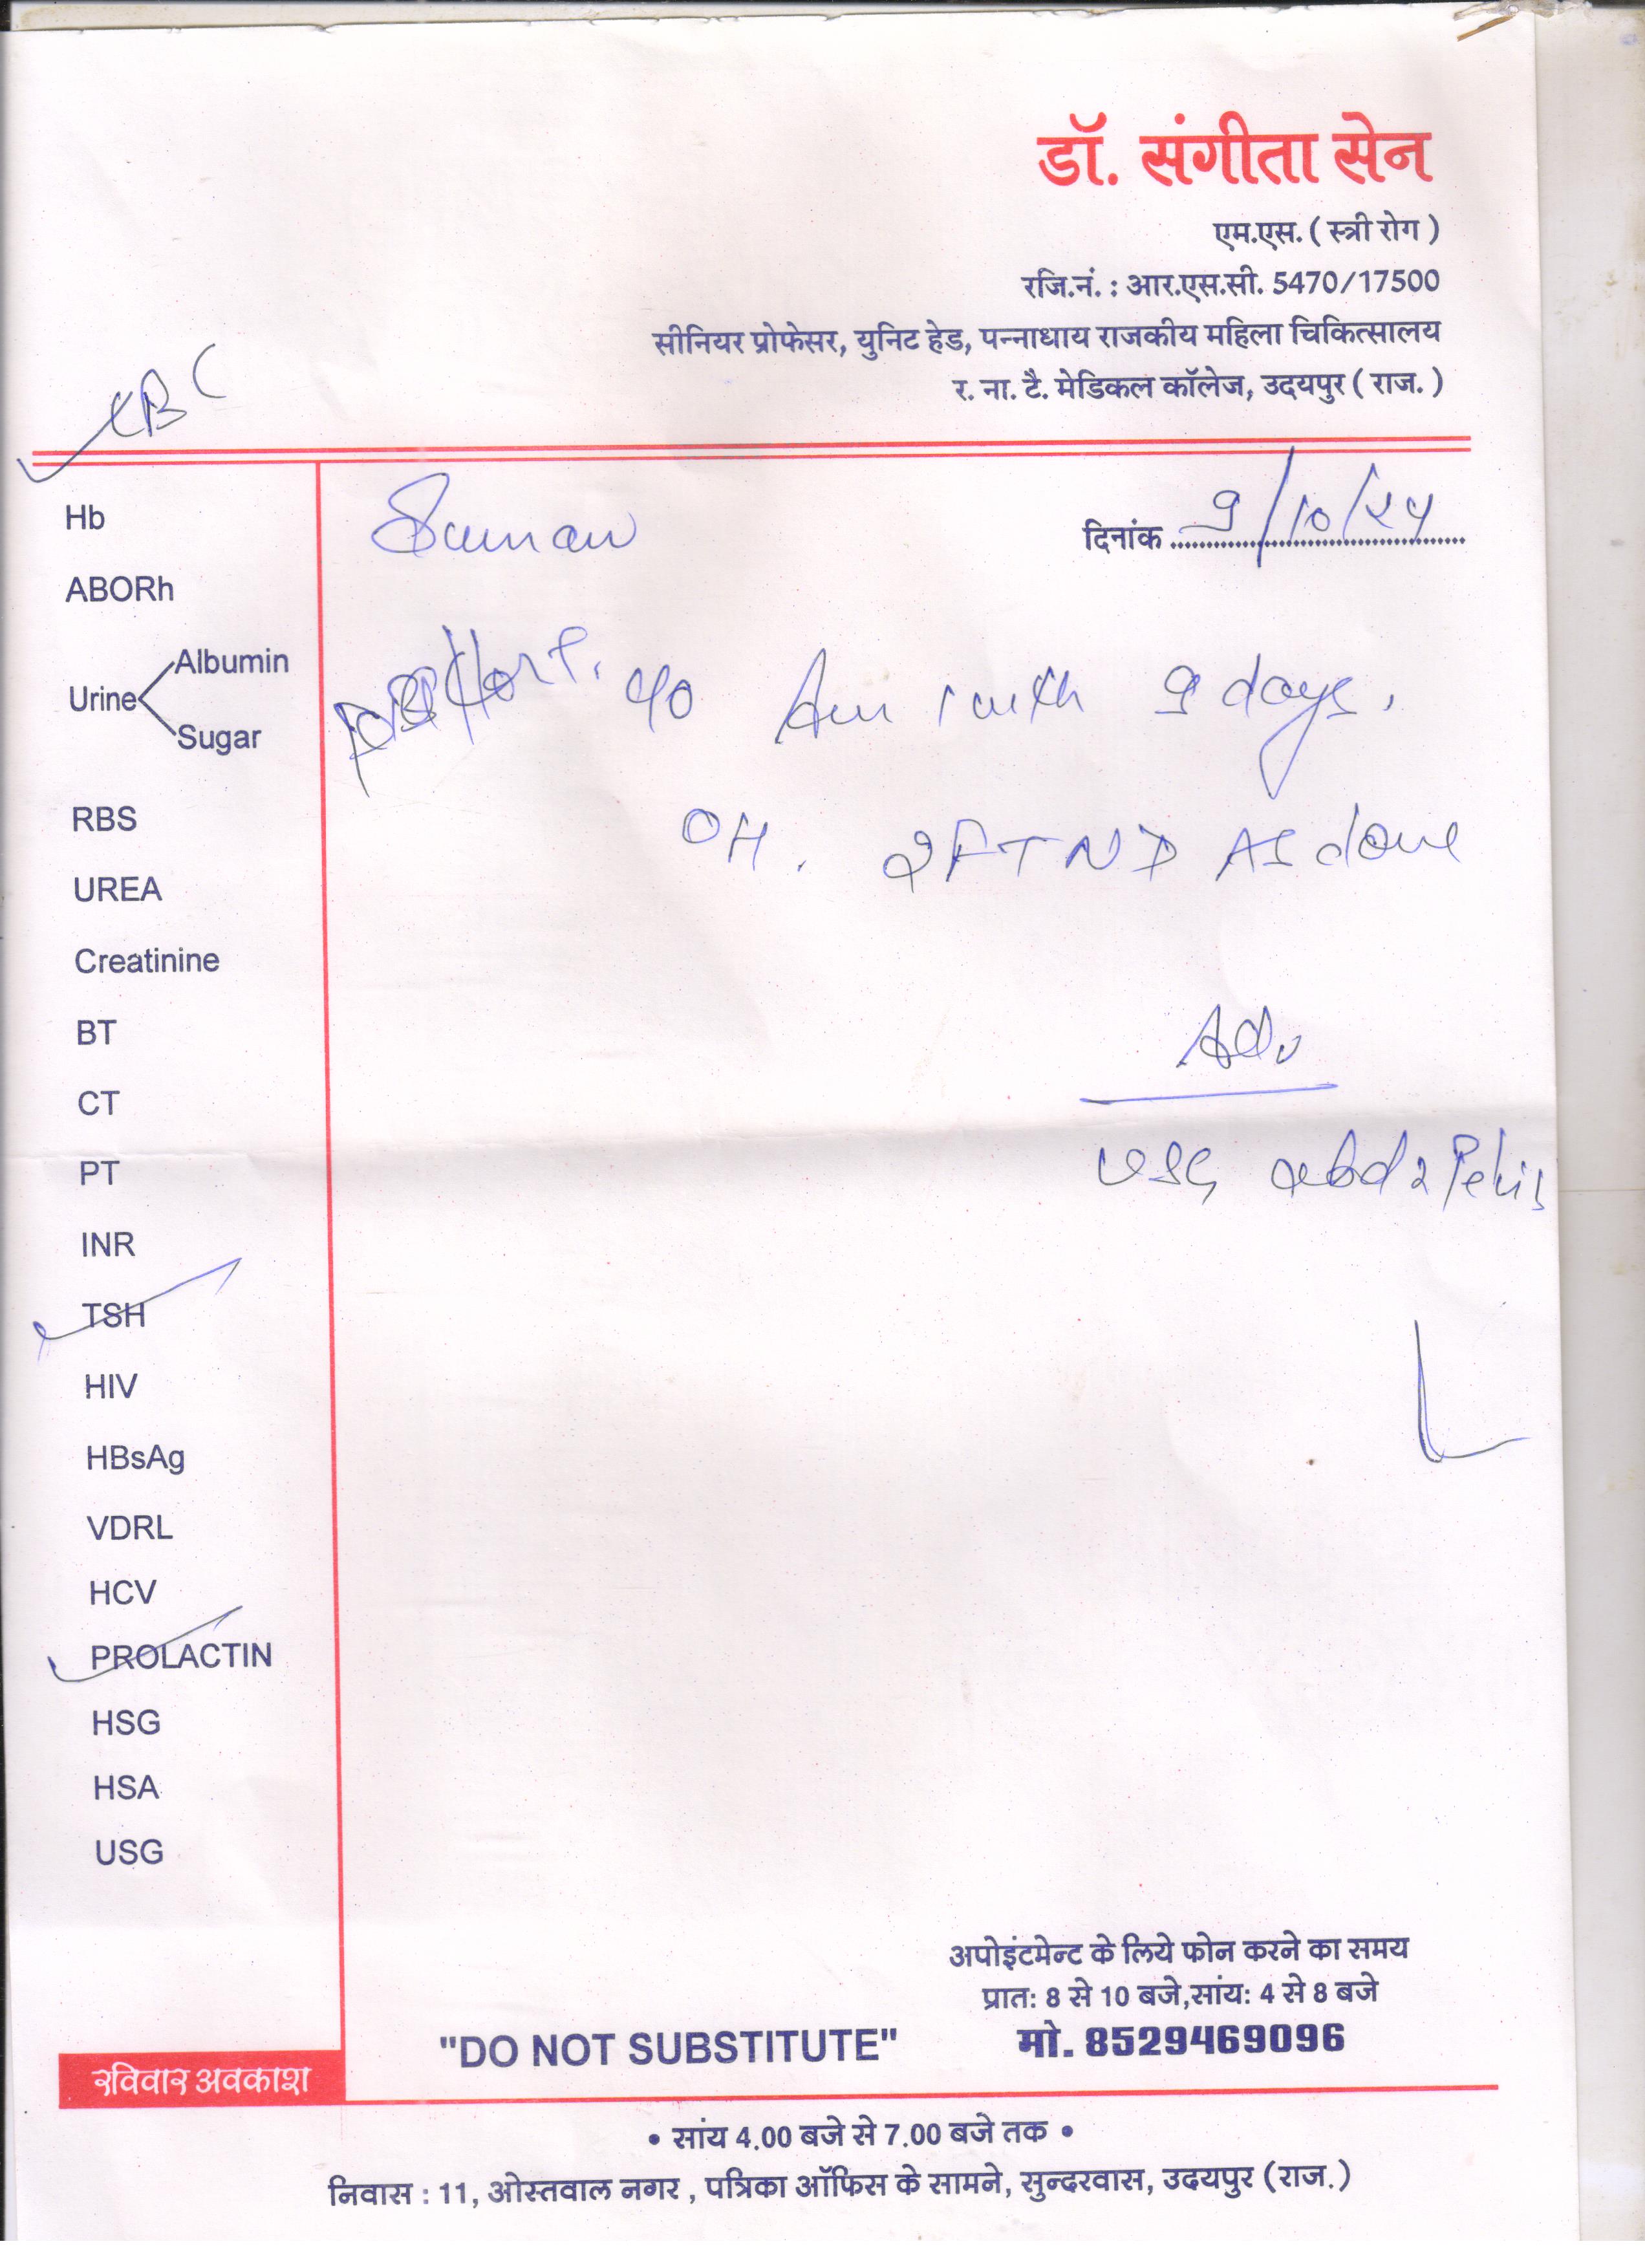 डॉ. संगीता सेन
एम.एस. ( स्त्री रोग )
रजि.नं. : आर.एस.सी. 5470/17500
सीनियर प्रोफेसर, युनिट हेड, पन्नाधाय राजकीय महिला चिकित्सालय
र. ना. टै. मेडिकल कॉलेज, उदयपुर ( राज. )
CBC
Suman
दिनांक 9/10/24
Hb
ABORh
Urine
Albumin
Sugar
RBS
UREA
Creatinine
BT
CT
PT
INR
TSH
HIV
HBsAg
VDRL
HCV
PROLACTIN
HSG
HSA
USG
9 days.
OH. 2FTND done
Adv
USG abd & Pelvis
अपोइंटमेन्ट के लिये फोन करने का समय
प्रात: 8 से 10 बजे,सांय: 4 से 8 बजे
मो. 8529469096
"DO NOT SUBSTITUTE"
रविवार अवकाश
• सांय 4.00 बजे से 7.00 बजे तक •
निवास : 11, ओस्तवाल नगर , पत्रिका ऑफिस के सामने, सुन्दरवास, उदयपुर (राज.)